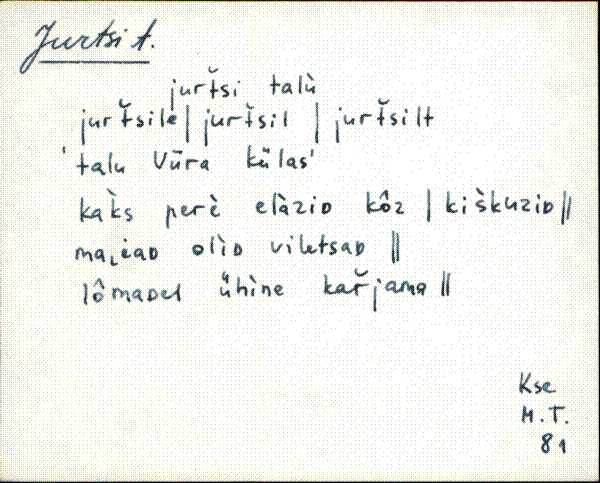 Jurtsi t.
jurt̆si talù
jurt̆sile | jurt̆sil | jurt̆silt
'talu Vūra külas'
kak̀s perè elàziᴅ kôz | kiš̀kuziᴅ ||
olìᴅ viletsaᴅ ||
lômaᴅel ühìne kar̆jama ||
Kse
M.T.
81